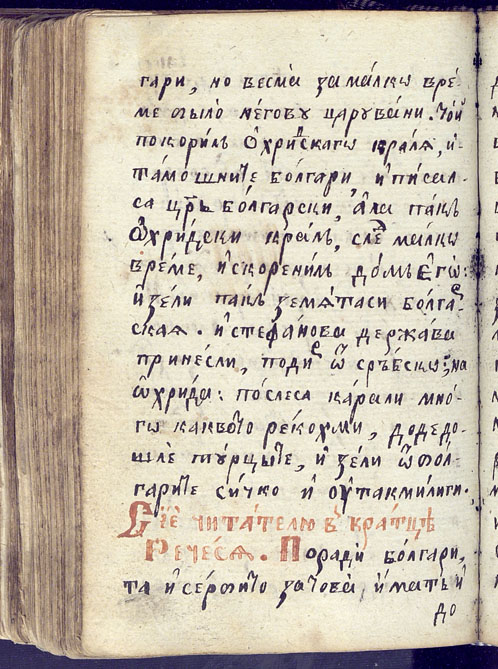 гари, но весма̀ за ма́лкѡ вре́-
ме было̀ не́гову царува́ни. Той
покори́лъ Ѻхри́дскагѡ кра́лѧ, и҆
та́мошните бо́лгари и҆ писал-
са цр҃ь бо́лгарски, а҆ла пакъ
Ѻ҆хри́дски кра́ль, слѣ ма́лкѡ
вре́ме, и҆скорени́лъ до́мъ Егѡ̀:
и҆ зе́ли пакъ земѧ́таси болга́р
скаѧ. и҆ стефа́нова держава
прине́сли, поди ѿ сръбскѡ, на
ѡ҆хри́да: по́слеса ка́рали мно́-
гѡ каквото реко́хми, додедо-
шлѐ ту́рцыте, и҆ зе́ли ѿ бол-
гарите си́чко и҆ оу҆такмилиги.
Сїѐ чита́телю в кра́тцѣ
Рече́сѧ. Поради бо́лгари,
та и҆ се́рбито за това̀ и҆матъ и҆
до